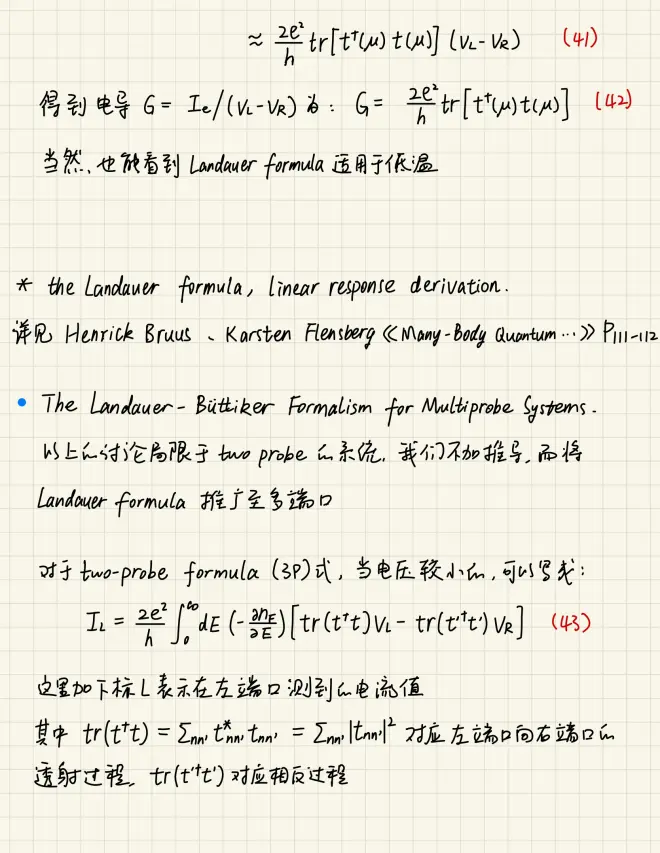 ≈ 2e²/h tr[t†(μ) t(μ)] (V_L - V_R) (41)
得到电导 G = I_e/(V_L-V_R) 为: G = 2e²/h tr[t†(μ)t(μ)] (42)
当然,也能看到 Landauer formula 适用于低温
* the Landauer formula, linear response derivation.
详见 Henrick Bruus 、Karsten Flensberg《Many-Body Quantum…》P111-112
• The Landauer-Büttiker Formalism for Multiprobe Systems.
以上的讨论局限于 two probe 的系统, 我们不加推导, 而将
Landauer formula 推广至多端口
对于 two-probe formula (39)式, 当电压较小的, 可以写成:
I_L = 2e²/h ∫₀^∞ dE (-∂n_E/∂E) [tr(t†t)V_L - tr(t'†t')V_R] (43)
这里加下标 L 表示在左端口测到的电流值
其中 tr(t†t) = Σ_nn' t*_nn' t_nn' = Σ_nn' |t_nn'|² 对应左端口向右端口的
透射过程, tr(t'†t') 对应相反过程